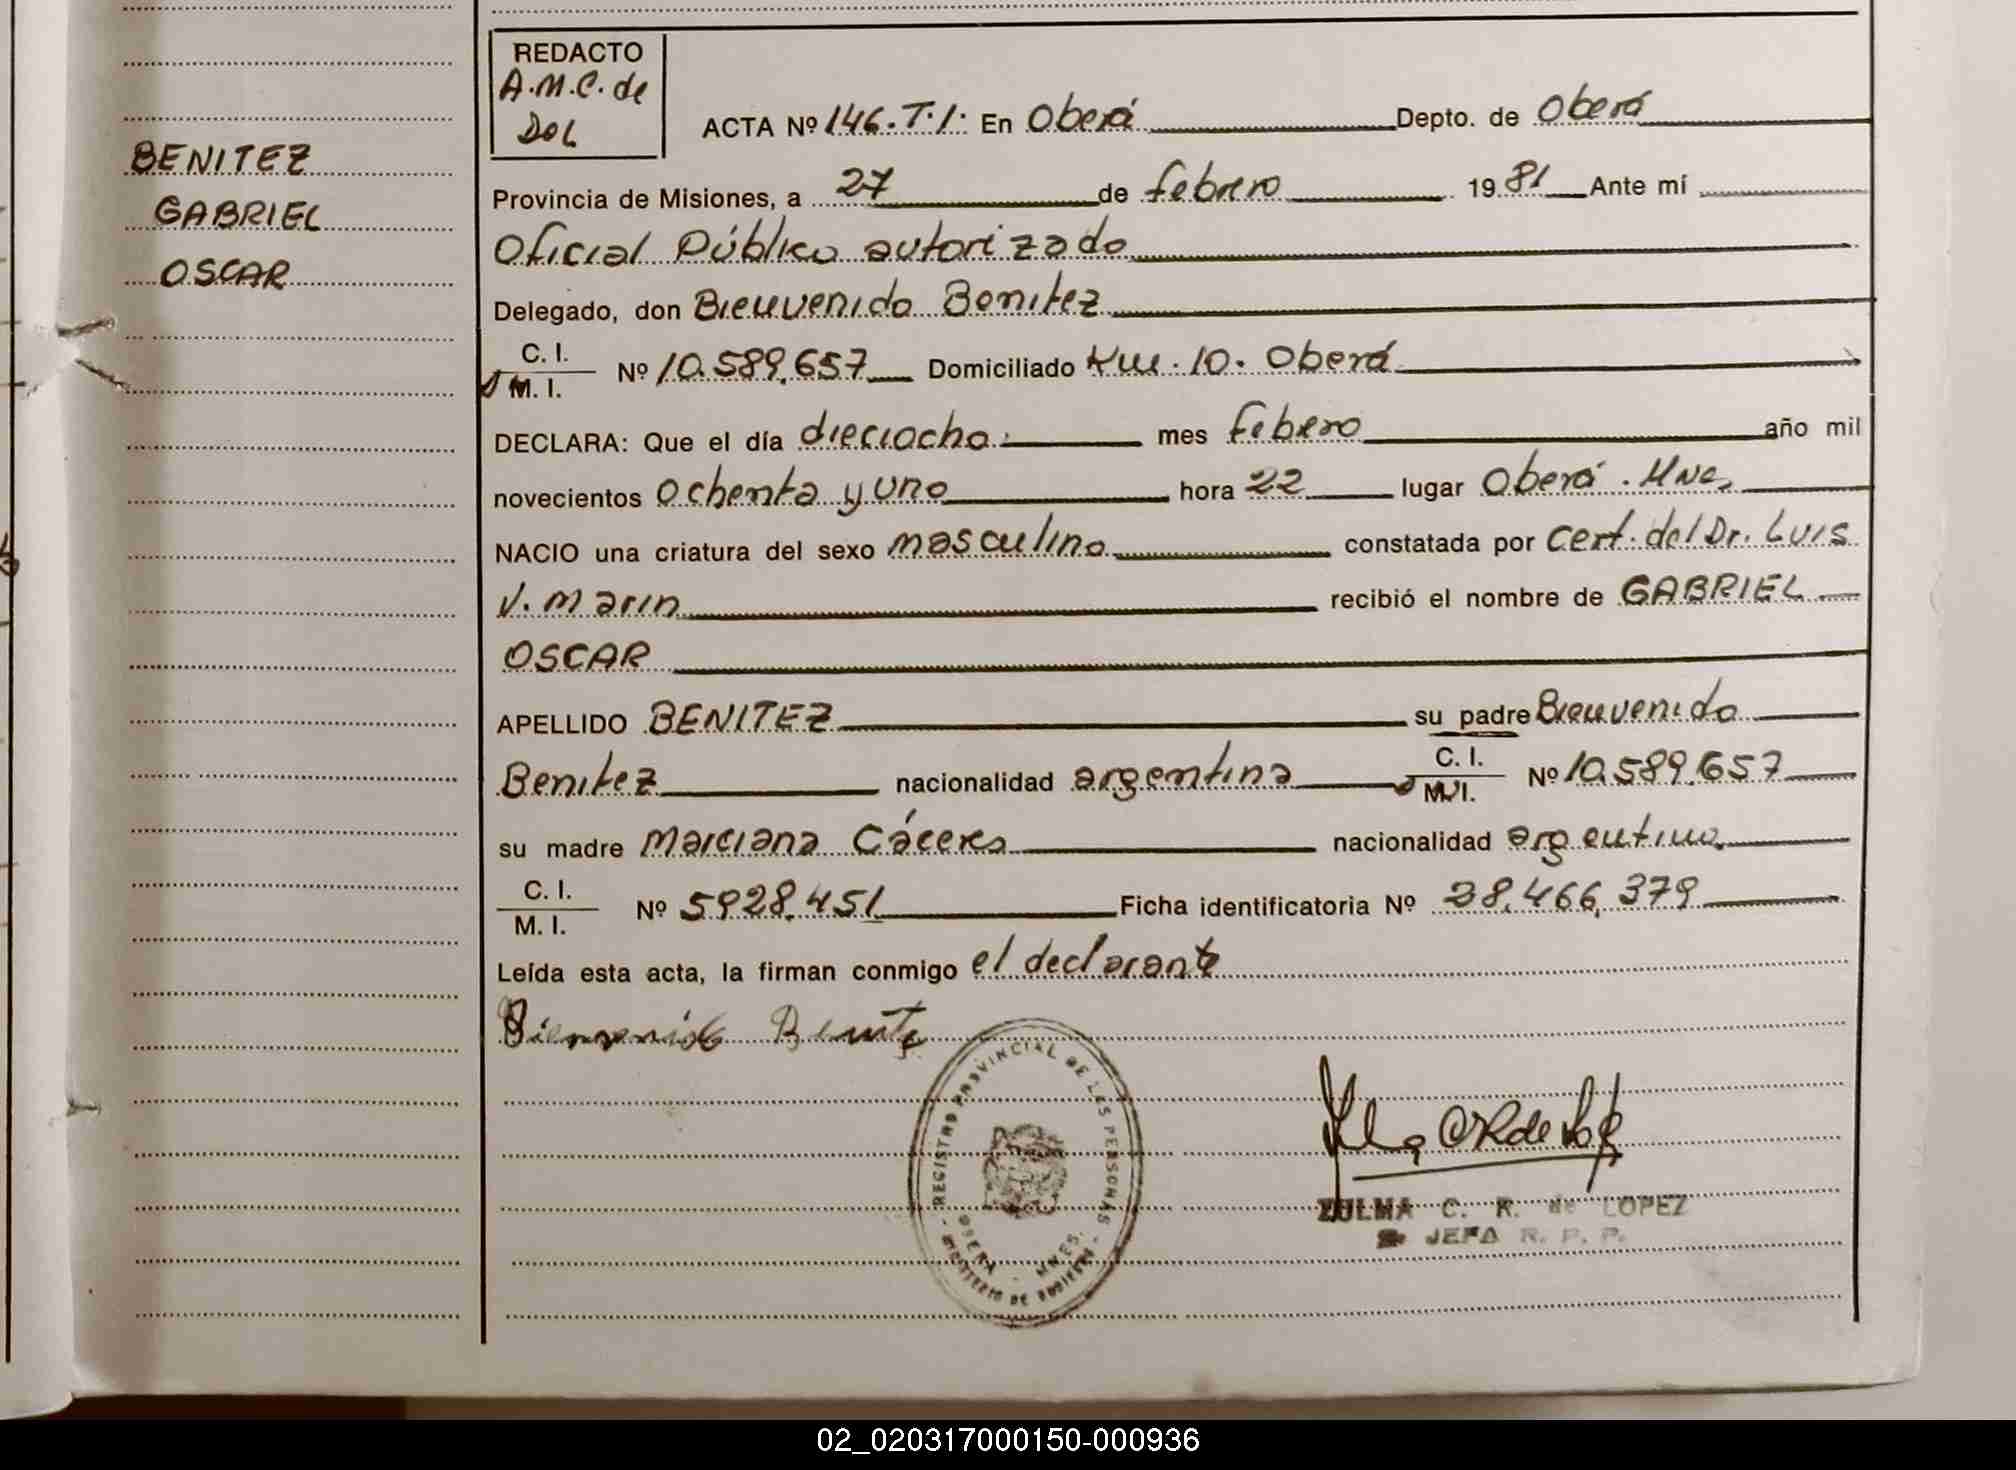 BENITEZ
GABRIEL
OSCAR
REDACTO
A.M.C. de
DOL
ACTA Nº 146.T.1. En Oberá Depto. de Oberá
Provincia de Misiones, a 27 de febrero 1981 Ante mí
Oficial Público autorizado
Delegado, don Bienvenido Benitez
C. I.
M. I. Nº 10.589.657 Domiciliado Km. 10. Oberá
DECLARA: Que el día dieciocho mes febrero año mil
novecientos ochenta y uno hora 22 lugar Oberá. Mnes.
NACIO una criatura del sexo masculino constatada por cert. del Dr. Luis
V. Marin recibió el nombre de GABRIEL
OSCAR
APELLIDO BENITEZ su padre Bienvenido
Benitez nacionalidad argentina C. I.
M. I. Nº 10.589.657
su madre Marciana Cáceres nacionalidad argentina
C. I.
M. I. Nº 5928.451 Ficha identificatoria Nº 28.466.379
Leída esta acta, la firman conmigo el declarante
Bienvenido Benitez
REGISTRO PROVINCIAL DE LAS PERSONAS
OBERA - MNES.
MINISTERIO DE GOBIERNO
ZULMA C. R. de LOPEZ
JEFA R. P. P.
02_020317000150-000936